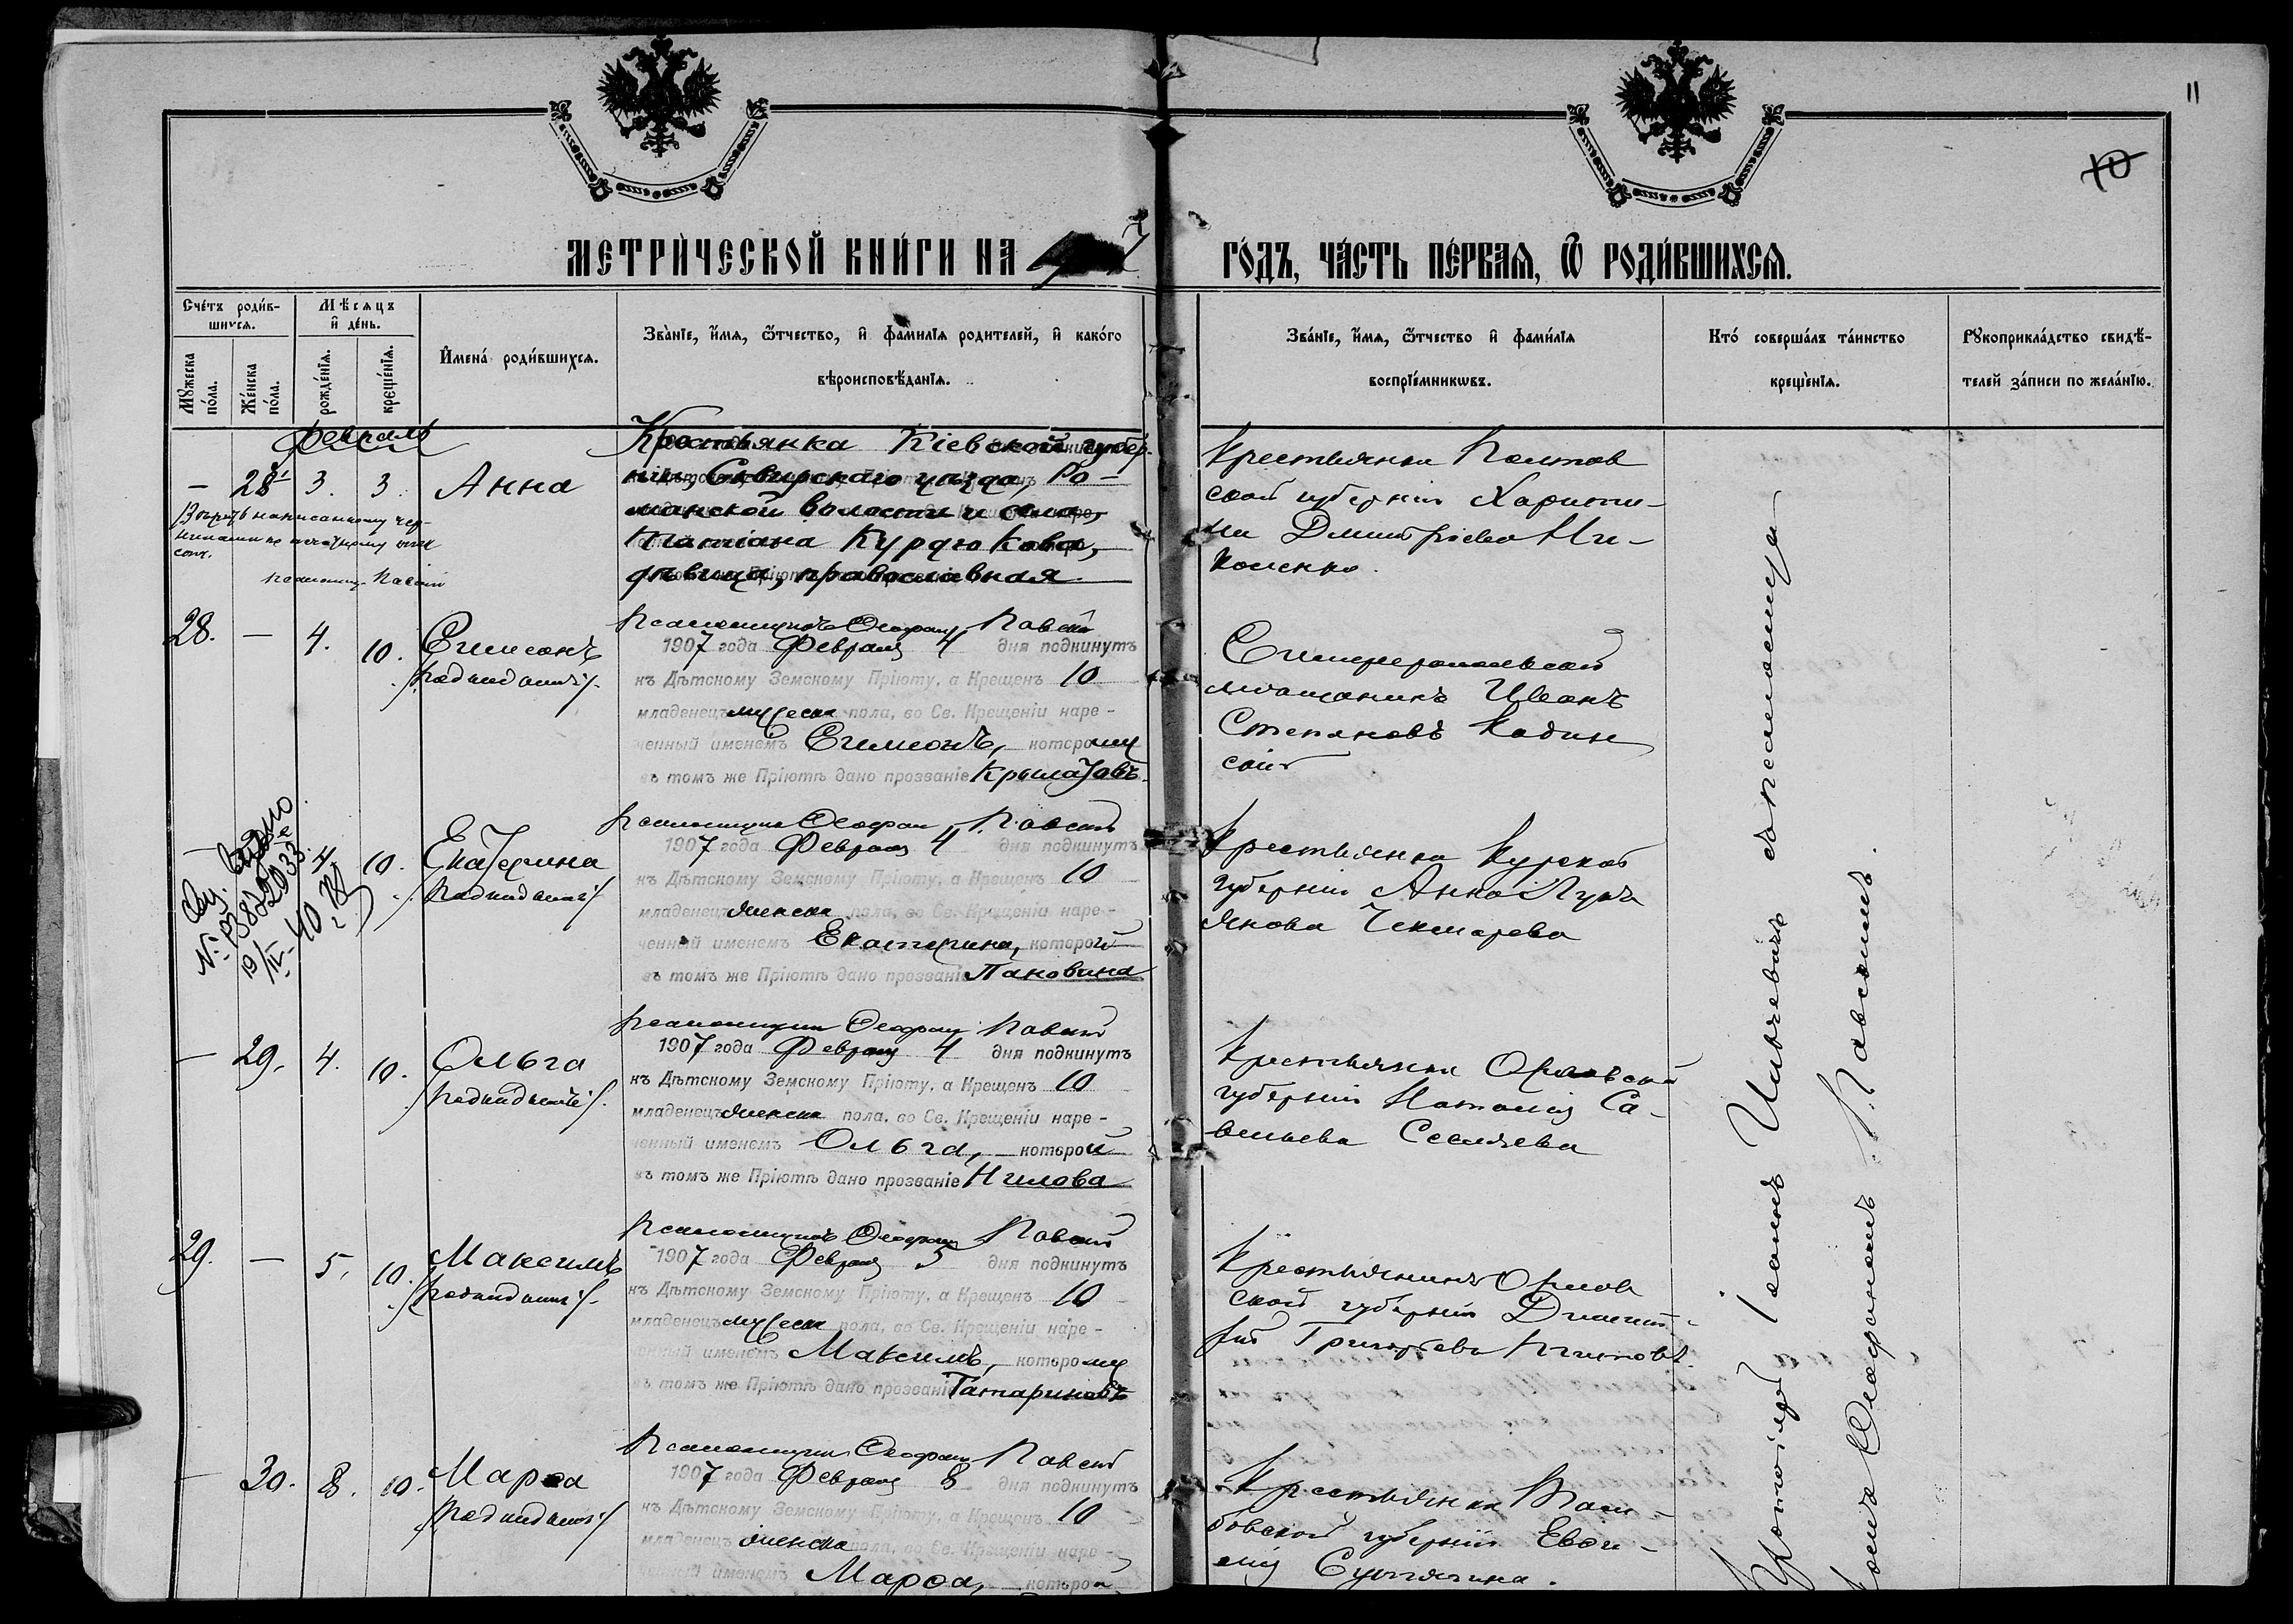 11
10
МЕТРИЧЕСКОЙ КНИГИ НА
ГОДЪ, ЧАСТЬ ПЕРВАЯ, Ѿ РОДИВШИХСЯ.
Счетъ родив-
шихся.
Мѣсяцъ
и день.
Мужеска
пола.
Женска
пола.
рожденія.
крещенія.
Имена родившихся.
Званіе, имя, ѿтчество, и фамилія родителей, и какого
вѣроисповѣданія.
Званіе, имя, ѿтчество и фамилія
воспріемниковъ.
Кто совершалъ таинство
крещенія.
Рукоприкладство свидѣ-
телей записи по желанію.
февраль
— 28 3. 3. Анна
Крестьянка Кіевской губер-
ніи, Сквирскаго уѣзда, Ро-
манской волости и села,
Татіана Курдюкова,
дѣвица, православная.
Крестьянка Полтав
ской губерніи Харити-
на Дмитріева Ни-
коленко.
28. — 4. 10. Симеонъ
/подкидышъ/.
Псаломщикъ Павскій
1907 года Февраля 4 дня подкинутъ
къ Дѣтскому Земскому Пріюту, а Крещенъ 10
младенецъ мужеска пола, во Св. Крещеніи наре-
ченный именемъ Симеонъ, которому
въ томъ же Пріютѣ дано прозваніе Крылатовъ.
Симферопольскій
мѣщанинъ Иванъ
Степановъ Кадин
скій
Выдано
№
19
— 4 10. Екатерина
/подкидышъ/
Павскій
1907 года Февраля 4 дня подкинутъ
къ Дѣтскому Земскому Пріюту, а Крещенъ 10
младенецъ женска пола, во Св. Крещеніи наре-
ченный именемъ Екатерина, которой
въ томъ же Пріютѣ дано прозваніе Пановина
Крестьянка Курской
губерніи Анна Лукь
янова Чекмарева
— 29. 4. 10. Ольга
/подкидышъ/.
Павскій
1907 года Февраля 4 дня подкинутъ
къ Дѣтскому Земскому Пріюту, а Крещенъ 10
младенецъ женска пола, во Св. Крещеніи наре-
ченный именемъ Ольга, которой
въ томъ же Пріютѣ дано прозваніе Нилова
Крестьянка Орловской
губерніи Наталія Са-
вельева
29. — 5. 10. Максимъ
/подкидышъ/.
Псаломщикъ Павскій
1907 года Февраля 5 дня подкинутъ
къ Дѣтскому Земскому Пріюту, а Крещенъ 10
младенецъ мужеска пола, во Св. Крещеніи наре-
ченный именемъ Максимъ, которому
въ томъ же Пріютѣ дано прозваніе Татариновъ
Крестьянинъ Орлов
ской губерніи Димит-
рій Григорьевъ
— 30. 8. 10. Марѳа
/подкидышъ/
Павскій
1907 года Февраля 8 дня подкинутъ
къ Дѣтскому Земскому Пріюту, а Крещенъ 10
младенецъ женска пола, во Св. Крещеніи наре-
ченный именемъ Марѳа, которой
Крестьянка Там-
бовской губерніи Евѳи-
мія
Протоіерей Іоаннъ съ псаломщи
комъ Ѳеофаномъ Павскимъ.